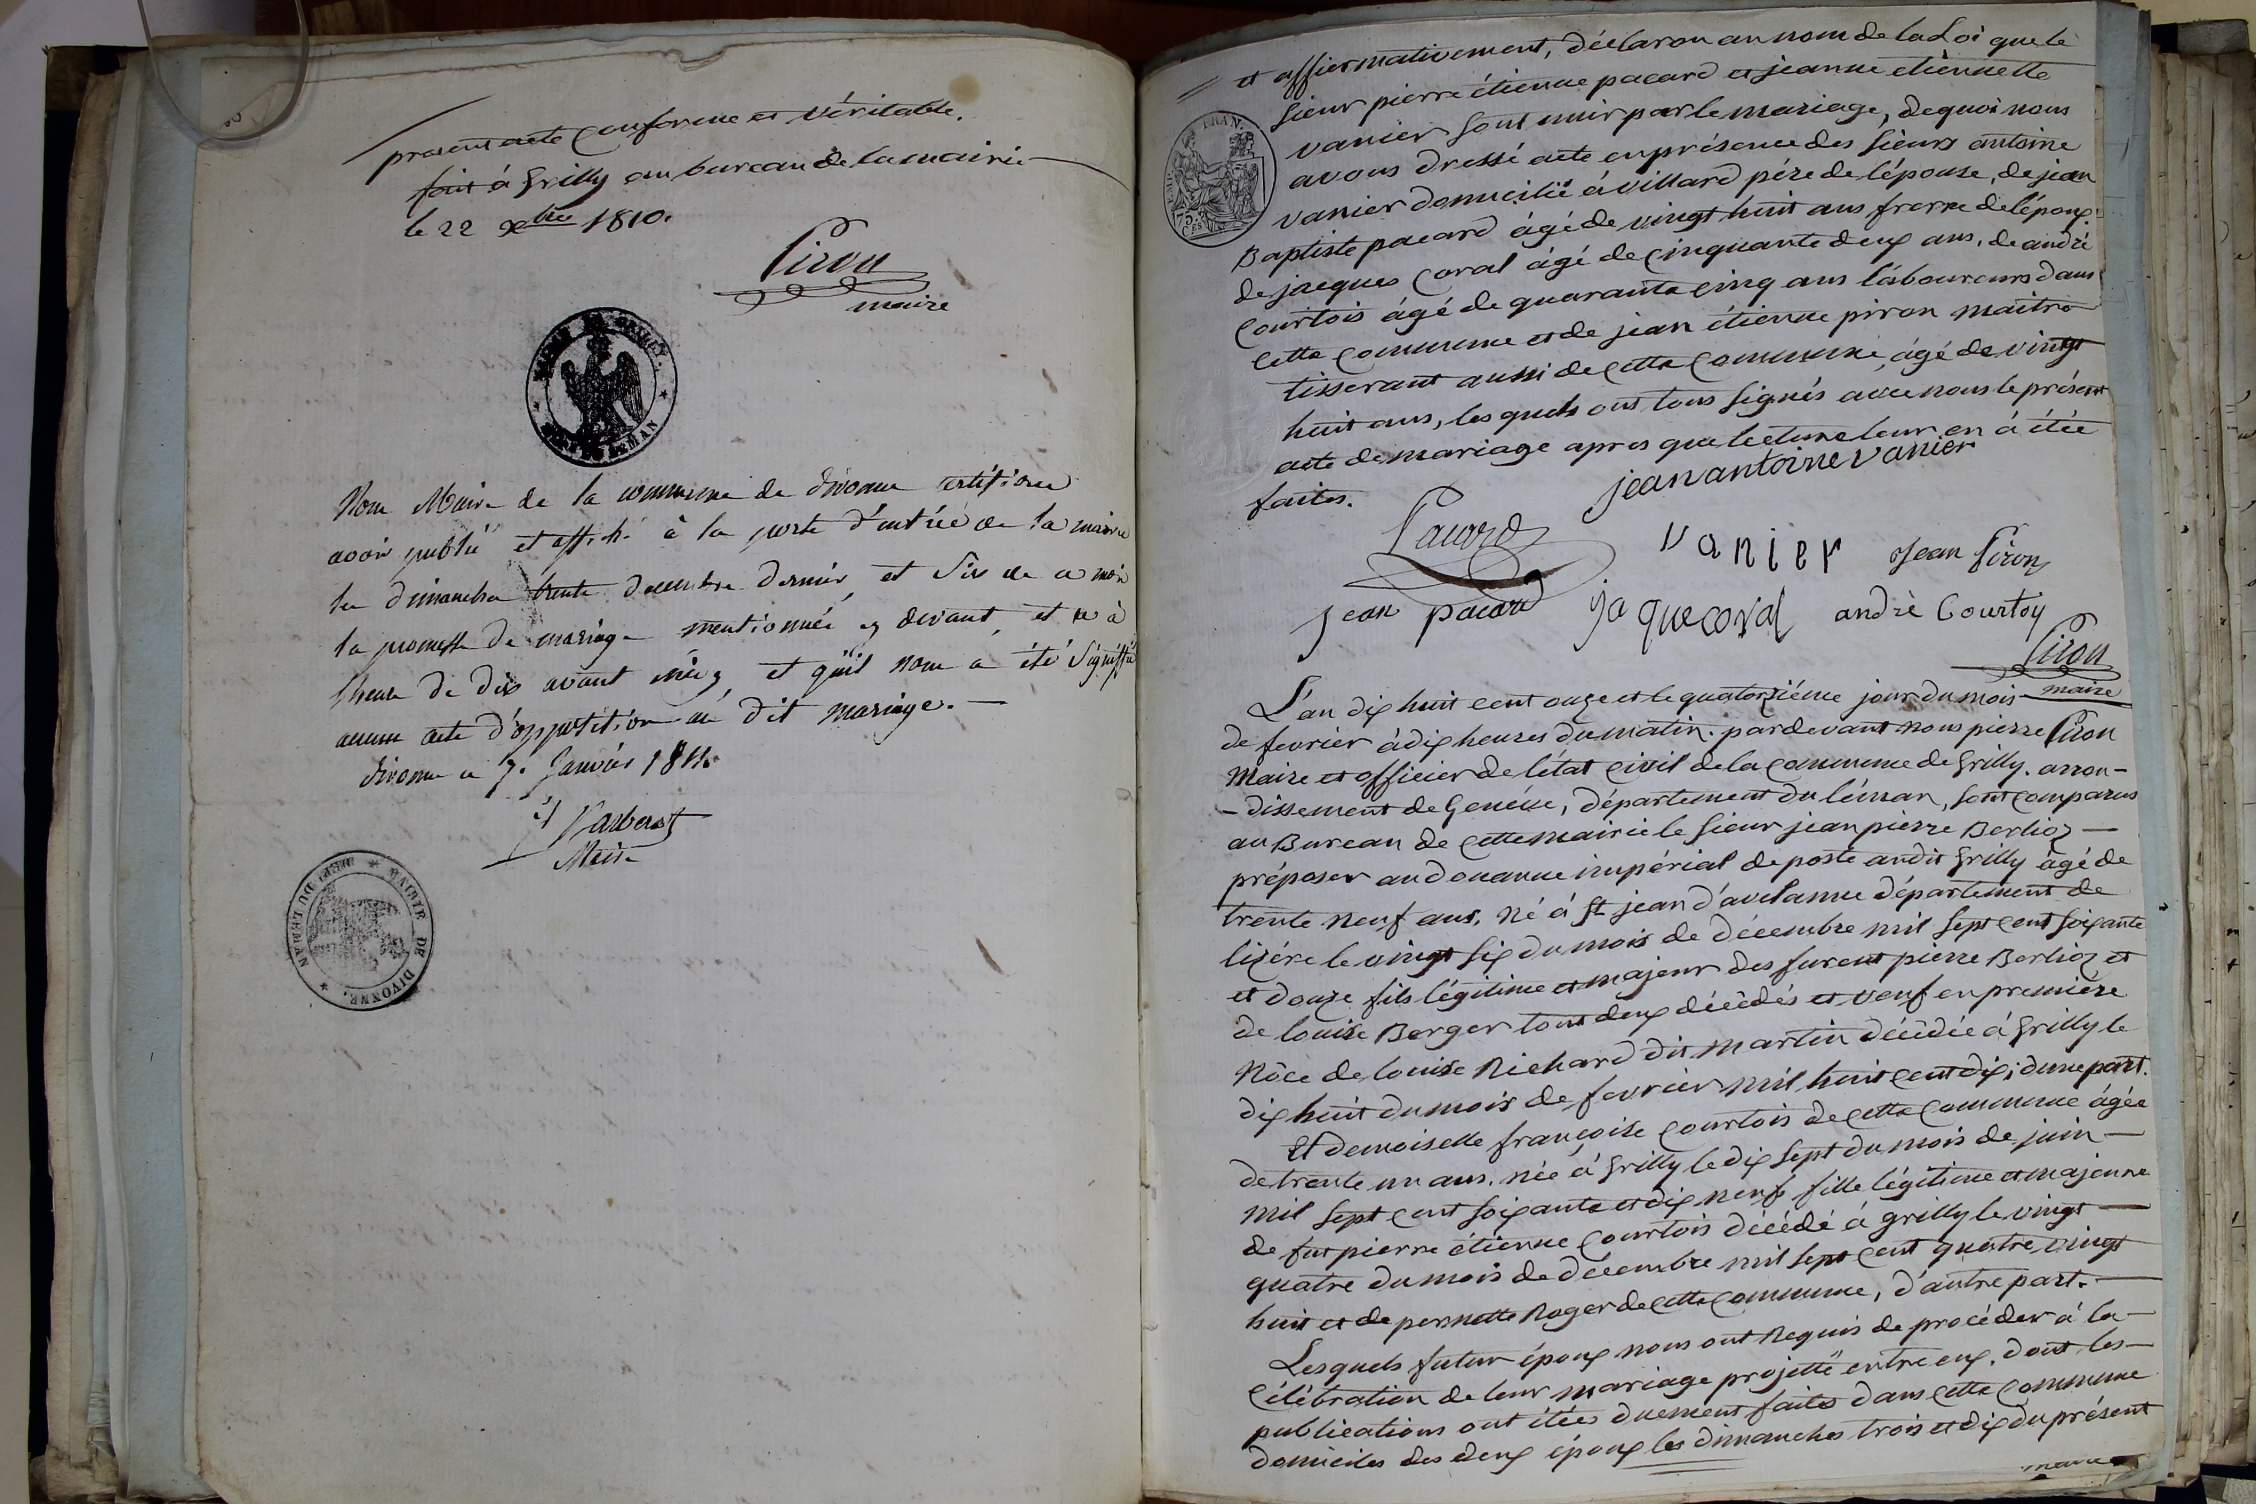 present acte Conforme et Véritable.
fait à Grilly au bureau de la mairie
le 22 Xbre 1810.
Piron
maire
MAIRIE DE GRILLY.
DEPT DU LEMAN
Nous Maire de la commune de divonne certifions
avoir publié et affiché à la porte d'entrée de la mairie
les dimanches trente decembre dernier et six de ce mois
la promesse de mariage mentionnée cy devant, et ce à
l'heure de dix avant midy et qu'il nous a été signiffié
aucun acte d'opposition au dit mariage. —
divonne ce 7. Janvier 1811.
Maire
MAIRIE DE DIVONNE.
DEPT DU LEMAN
et affirmativement, déclaron au nom de la Loi que le
sieur pierre étienne pacard et jeanne etiennette
vanier sont unir par le mariage, de quoi nous
avons dressé acte en présence des sieurs antoine
vanier domicilié à villard pére de l'épouse, de jean
Baptiste pacard âgé de vingt huit ans frerre de l'époux
de jacques Coral âgé de Cinquante deux ans, de andré
Courtois âgé de quarante cinq ans laboureurs dans
Cette Commune et de jean étienne piron maitre
tisserant aussi de Cette Commune, âgé de vingt
huit ans, les quels ont tous signés avec nous le présent
acte de mariage apres que lecture leur en à étée
faites.
jean antoine vanier
Pacard
vanier
Jean Piron
jean pacard
jaque coral
andrè Courtoy
Piron
maire
L'an dix huit cent onze et le quatorziéme jour du mois
de fevrier à dix heures du matin. pardevant nous pierre Piron
Maire et officier de l'état Civil de la Commune de Grilly. arron-
-dissement de Genéve, département du léman, sont Comparus
au Bureau de Cette mairie le sieur jean pierre Berlioz —
préposer au douanne impérial de poste audit Grilly âgé de
trente neuf ans. né à St jean d'avelanne département de
lizére le vingt six du mois de décembre mil sept Cent soixante
et douze fils légitime et majeur des furent pierre Berlioz et
de louise Berger tous deux décédés et veuf en premiére
Nôce de louise Richard dit martin décédée à Grilly le
dix huit du mois de fevrier mil huit Cent dix; d'une part.
Et demoiselle françoise Courtois de Cette Commune âgée
de trente un ans. née à Grilly le dix sept du mois de juin —
mil sept Cent soixante et dix neuf fille légitime et majeure
de fut pierre étienne Courtois décédé à grilly le vingt —
quatre du mois de décembre mil sept Cent quatre vingt
huit et de pernette Roger de Cette Commune, d'autre part. —
Lesquels futur époux nous ont Requis de procéder à la —
Célébration de leur mariage projetté entre eux. dont les —
publications ont étées duement faites dans Cette Commune
domiciles des deux époux les dimanches trois et dix du présent